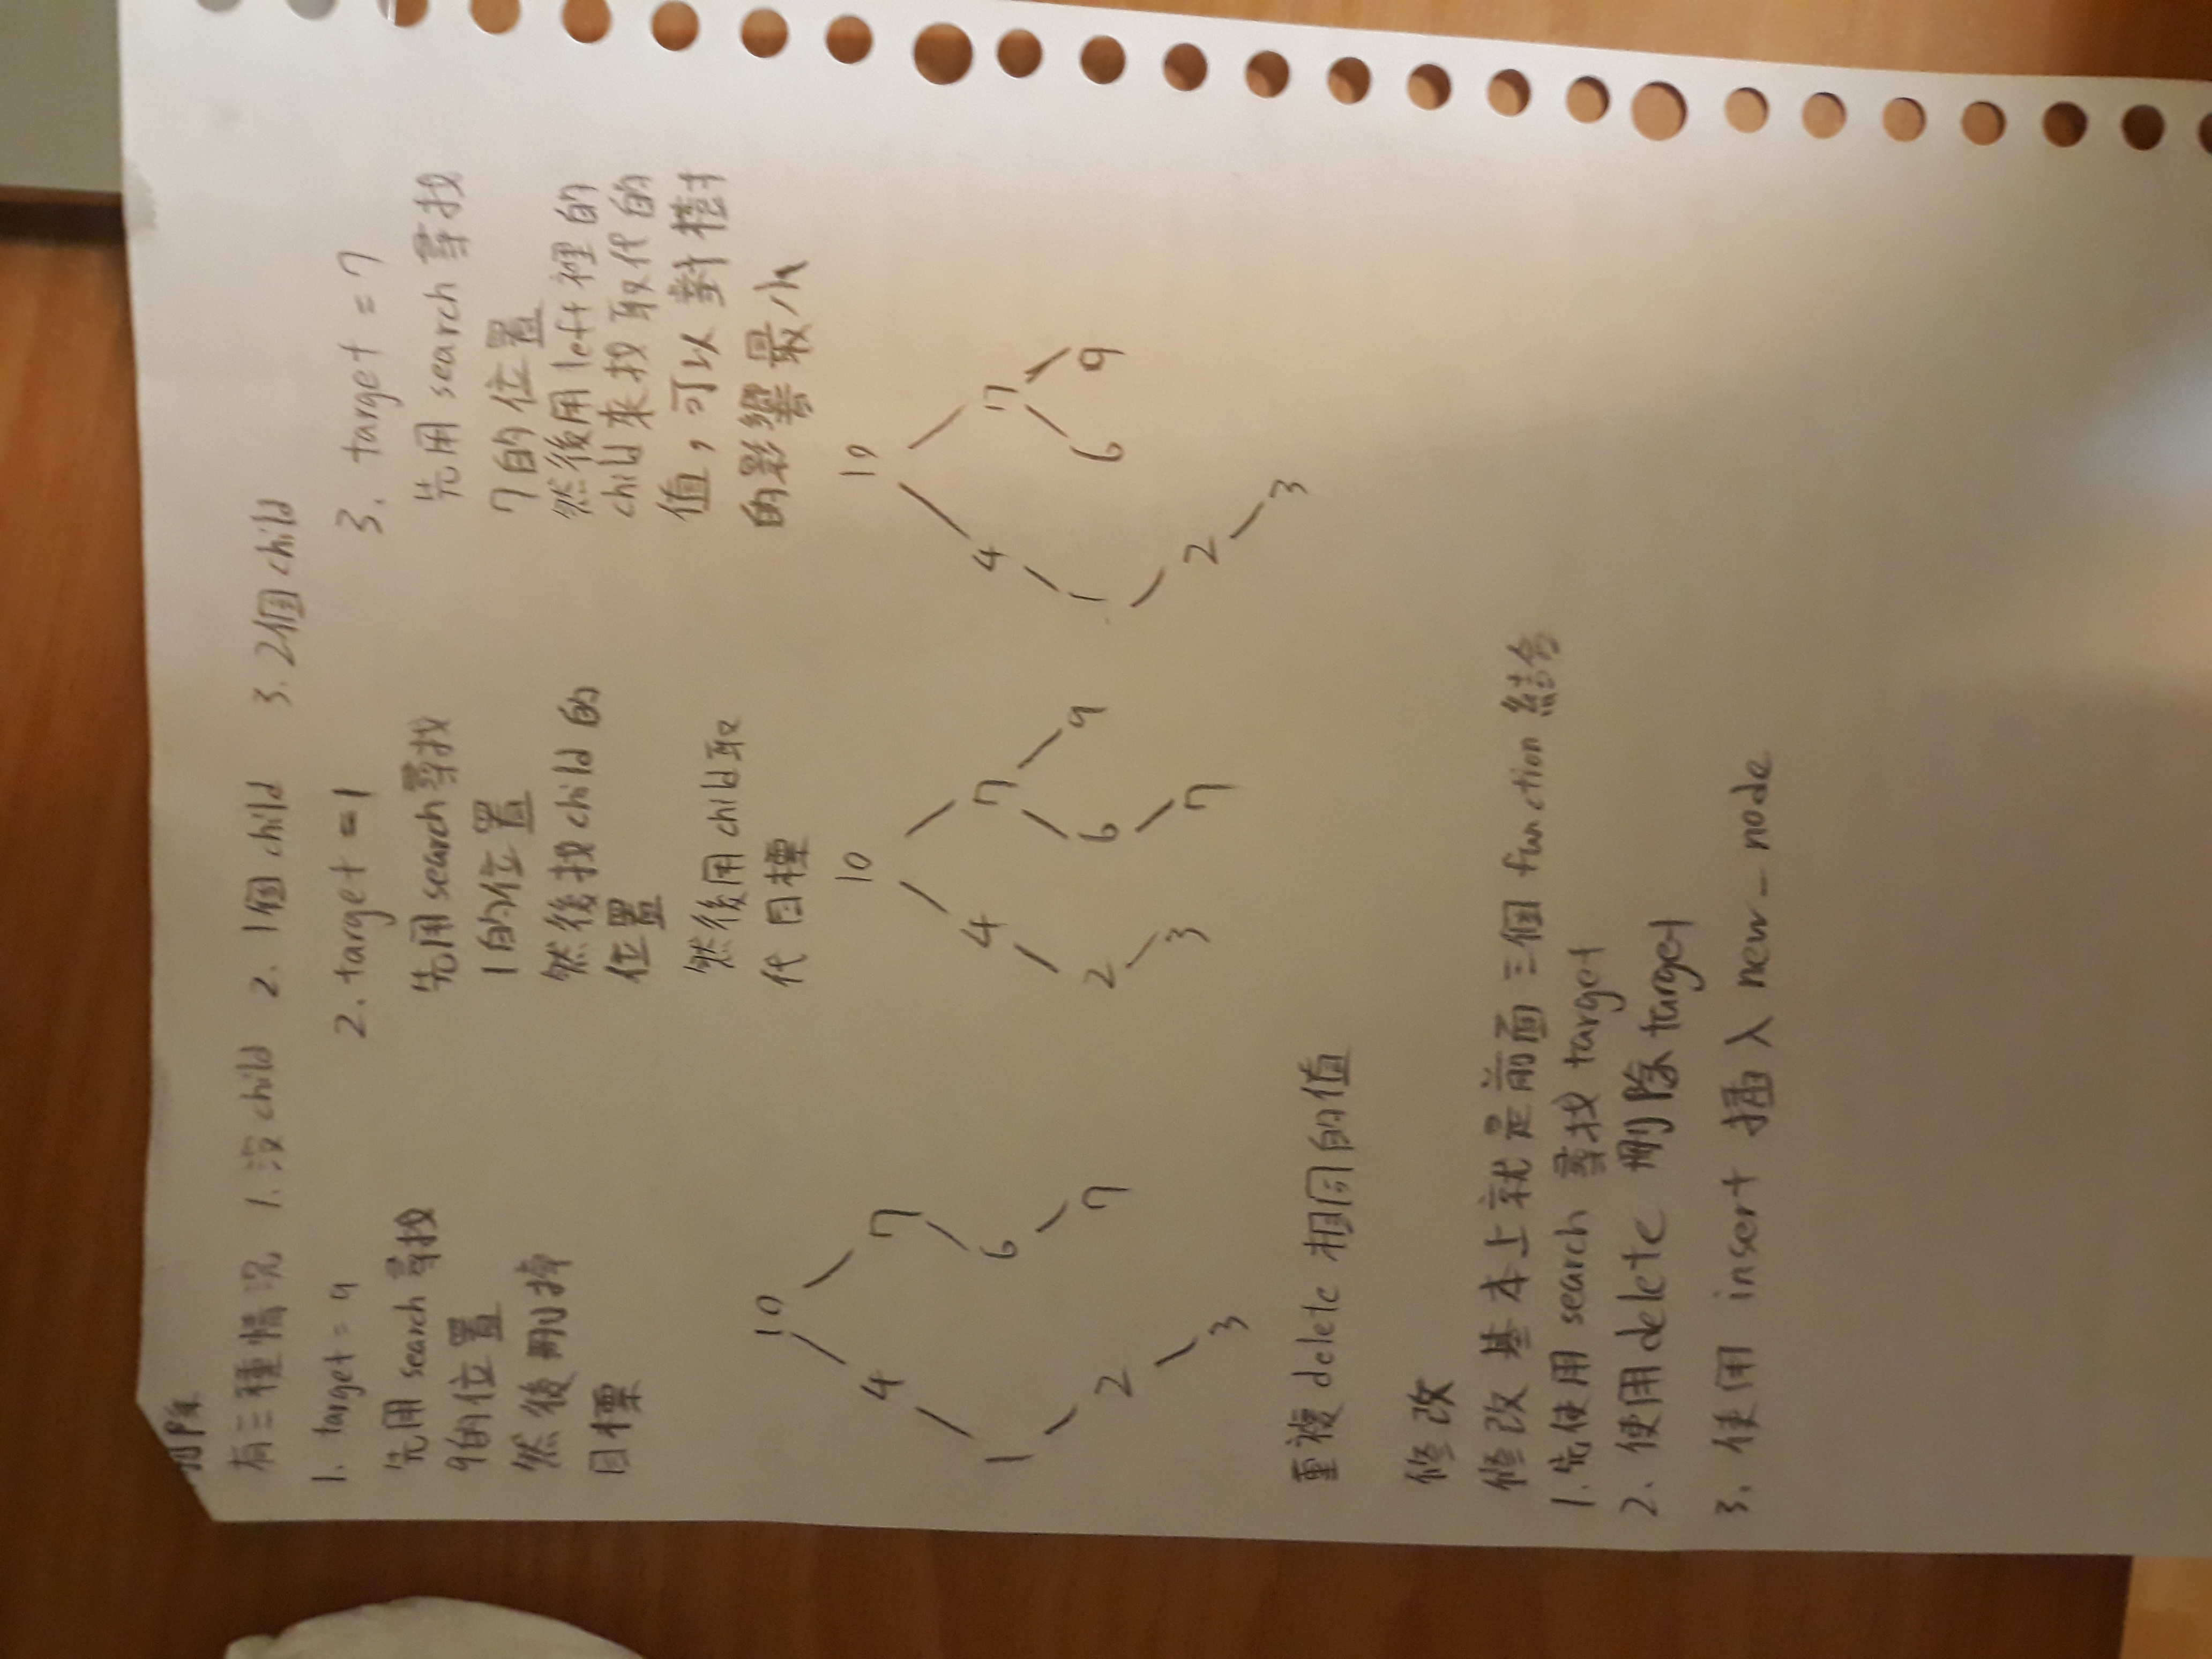 刪除
有三種情況 1. 沒child 2. 1個child 3. 2個child
1. target = 9
先用search尋找
9的位置
然後刪掉
目標
10
4 7
1 6
2 7
3
2. target = 1
先用search尋找
1的位置
然後找child的
位置
然後用child取
代目標
10
4 7
2 6 9
3 7
3. target = 7
先用search尋找
7的位置
然後用left裡的
child來找取代的
值,可以對樹
的影響最小
10
4 7
1 6 9
2
3
重複delete相同的值
修改
修改基本上就是前面三個function結合
1.先使用search尋找target
2. 使用delete刪除target
3. 使用insert插入new_node